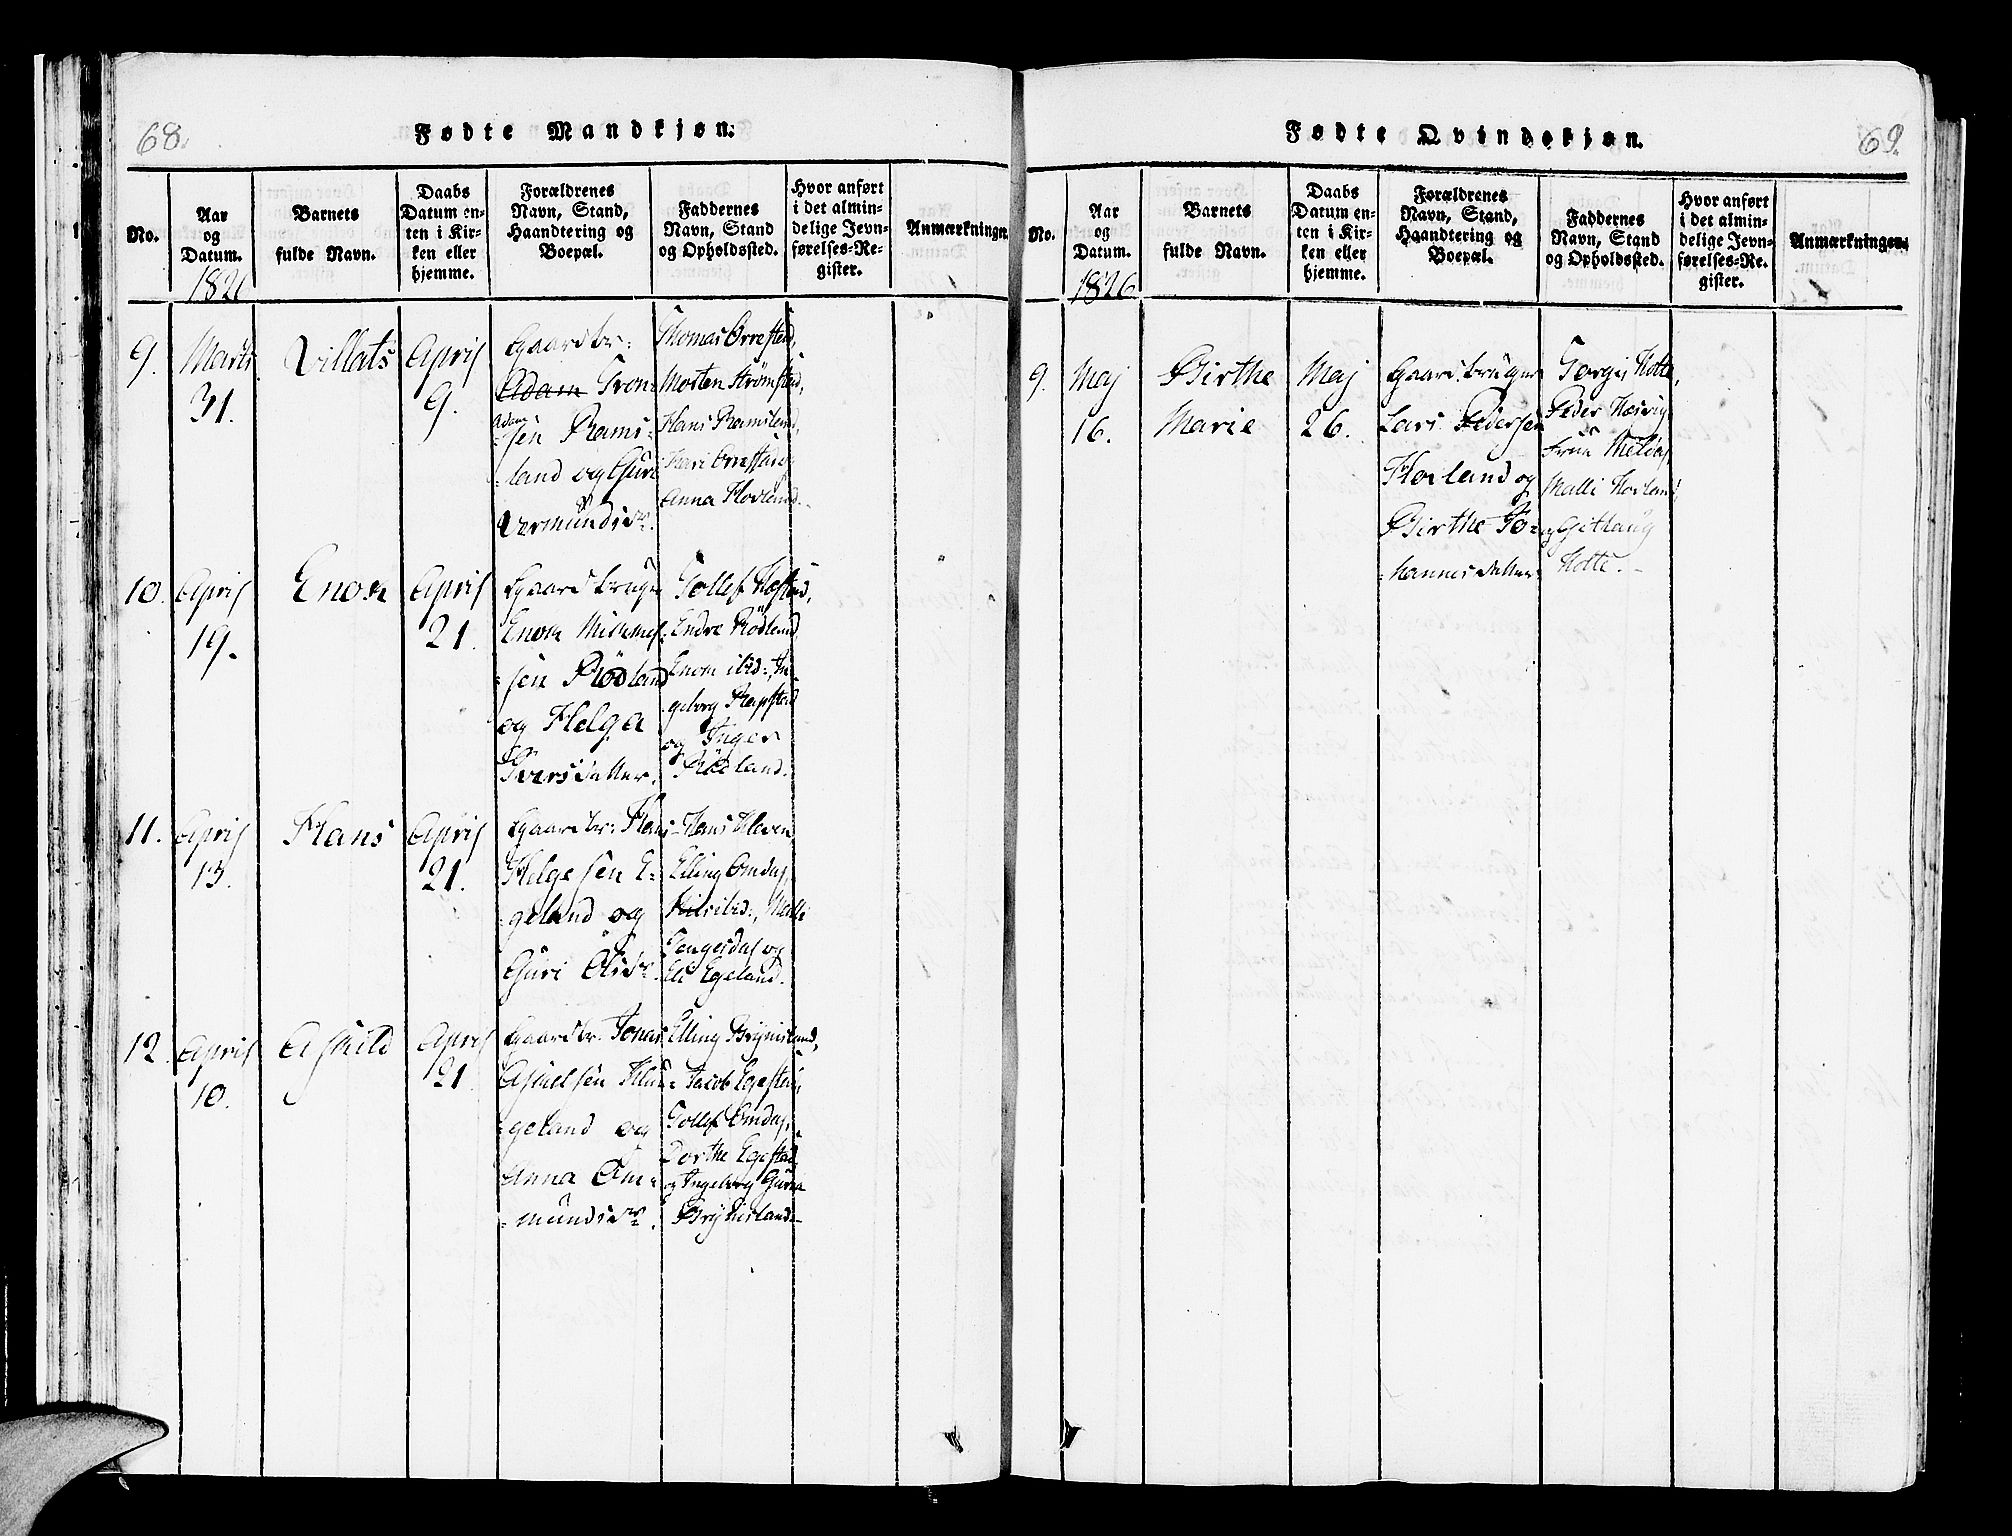 68.
Fødte Mandkjøn.
No.
Aar
og
Datum.
Barnets
fulde Navn.
Daabs
Datum en-
ten i Kir-
ken eller
hjemme.
Forældrenes
Navn, Stand,
Haandtering og
Boepæl.
Faddernes
Navn, Stand
og Opholdssted.
Hvor anført
i det almin-
delige Jevn-
førelses-Re-
gister.
Anmærkninger
9.
31.
April
9.
Gaardbr:
Adam Tron=
Adam
=sen Rams=
=land og Guri
Thomas Orrestad,
Morten Strømstad,
Hans Ramsland,
Kari Orrestad og
Anna Hovland.
10.
April
19.
Enok
April
21.
Gaardbruger
Enok
=sen Rødland
og Helga
Iversdatter.
Tollef
Endre Rødland
Enok ibid:, In=
geborg Repstad
og Inger
Rødland.
11.
April
13.
Hans
April
21.
Gaardbr: Hans
Helgesen E=
=geland og
Guri
Hans Kleven
Elling Omdal,
ibid:, Malli
og
Eli Egeland.
12.
April
10.
Askild
April
21
Gaardbr. Jonas
Askielsen Hun=
=geland og
Anna Om=
=mundsdtr.
Elling Brynisland,
Jacob Egestad,
Tollef Omdal,
Dorthe Egestad
og Ingeborg
Brynisland.
69.
Fødte Qvindekjøn.
No.
Aar
og
Datum.
1826
Barnets
fulde Navn.
Daabs
Datum en-
ten i Kir-
ken eller
hjemme.
Forældrenes
Navn, Stand,
Haandtering og
Boepæl.
Faddernes
Navn, Stand
og Opholdssted.
Hvor anført
i det almin-
delige Jevn-
førelses-Re-
gister.
Anmærkninger.
9.
Maj
16.
Birthe
Marie
Maj
26.
Gaardbruger
Lars Pedersen
Hovland og
Birthe Jo=
=hannesdatter
Torgij Hotte,
Peder
Malli Hovland
og Githaug
Hotte.